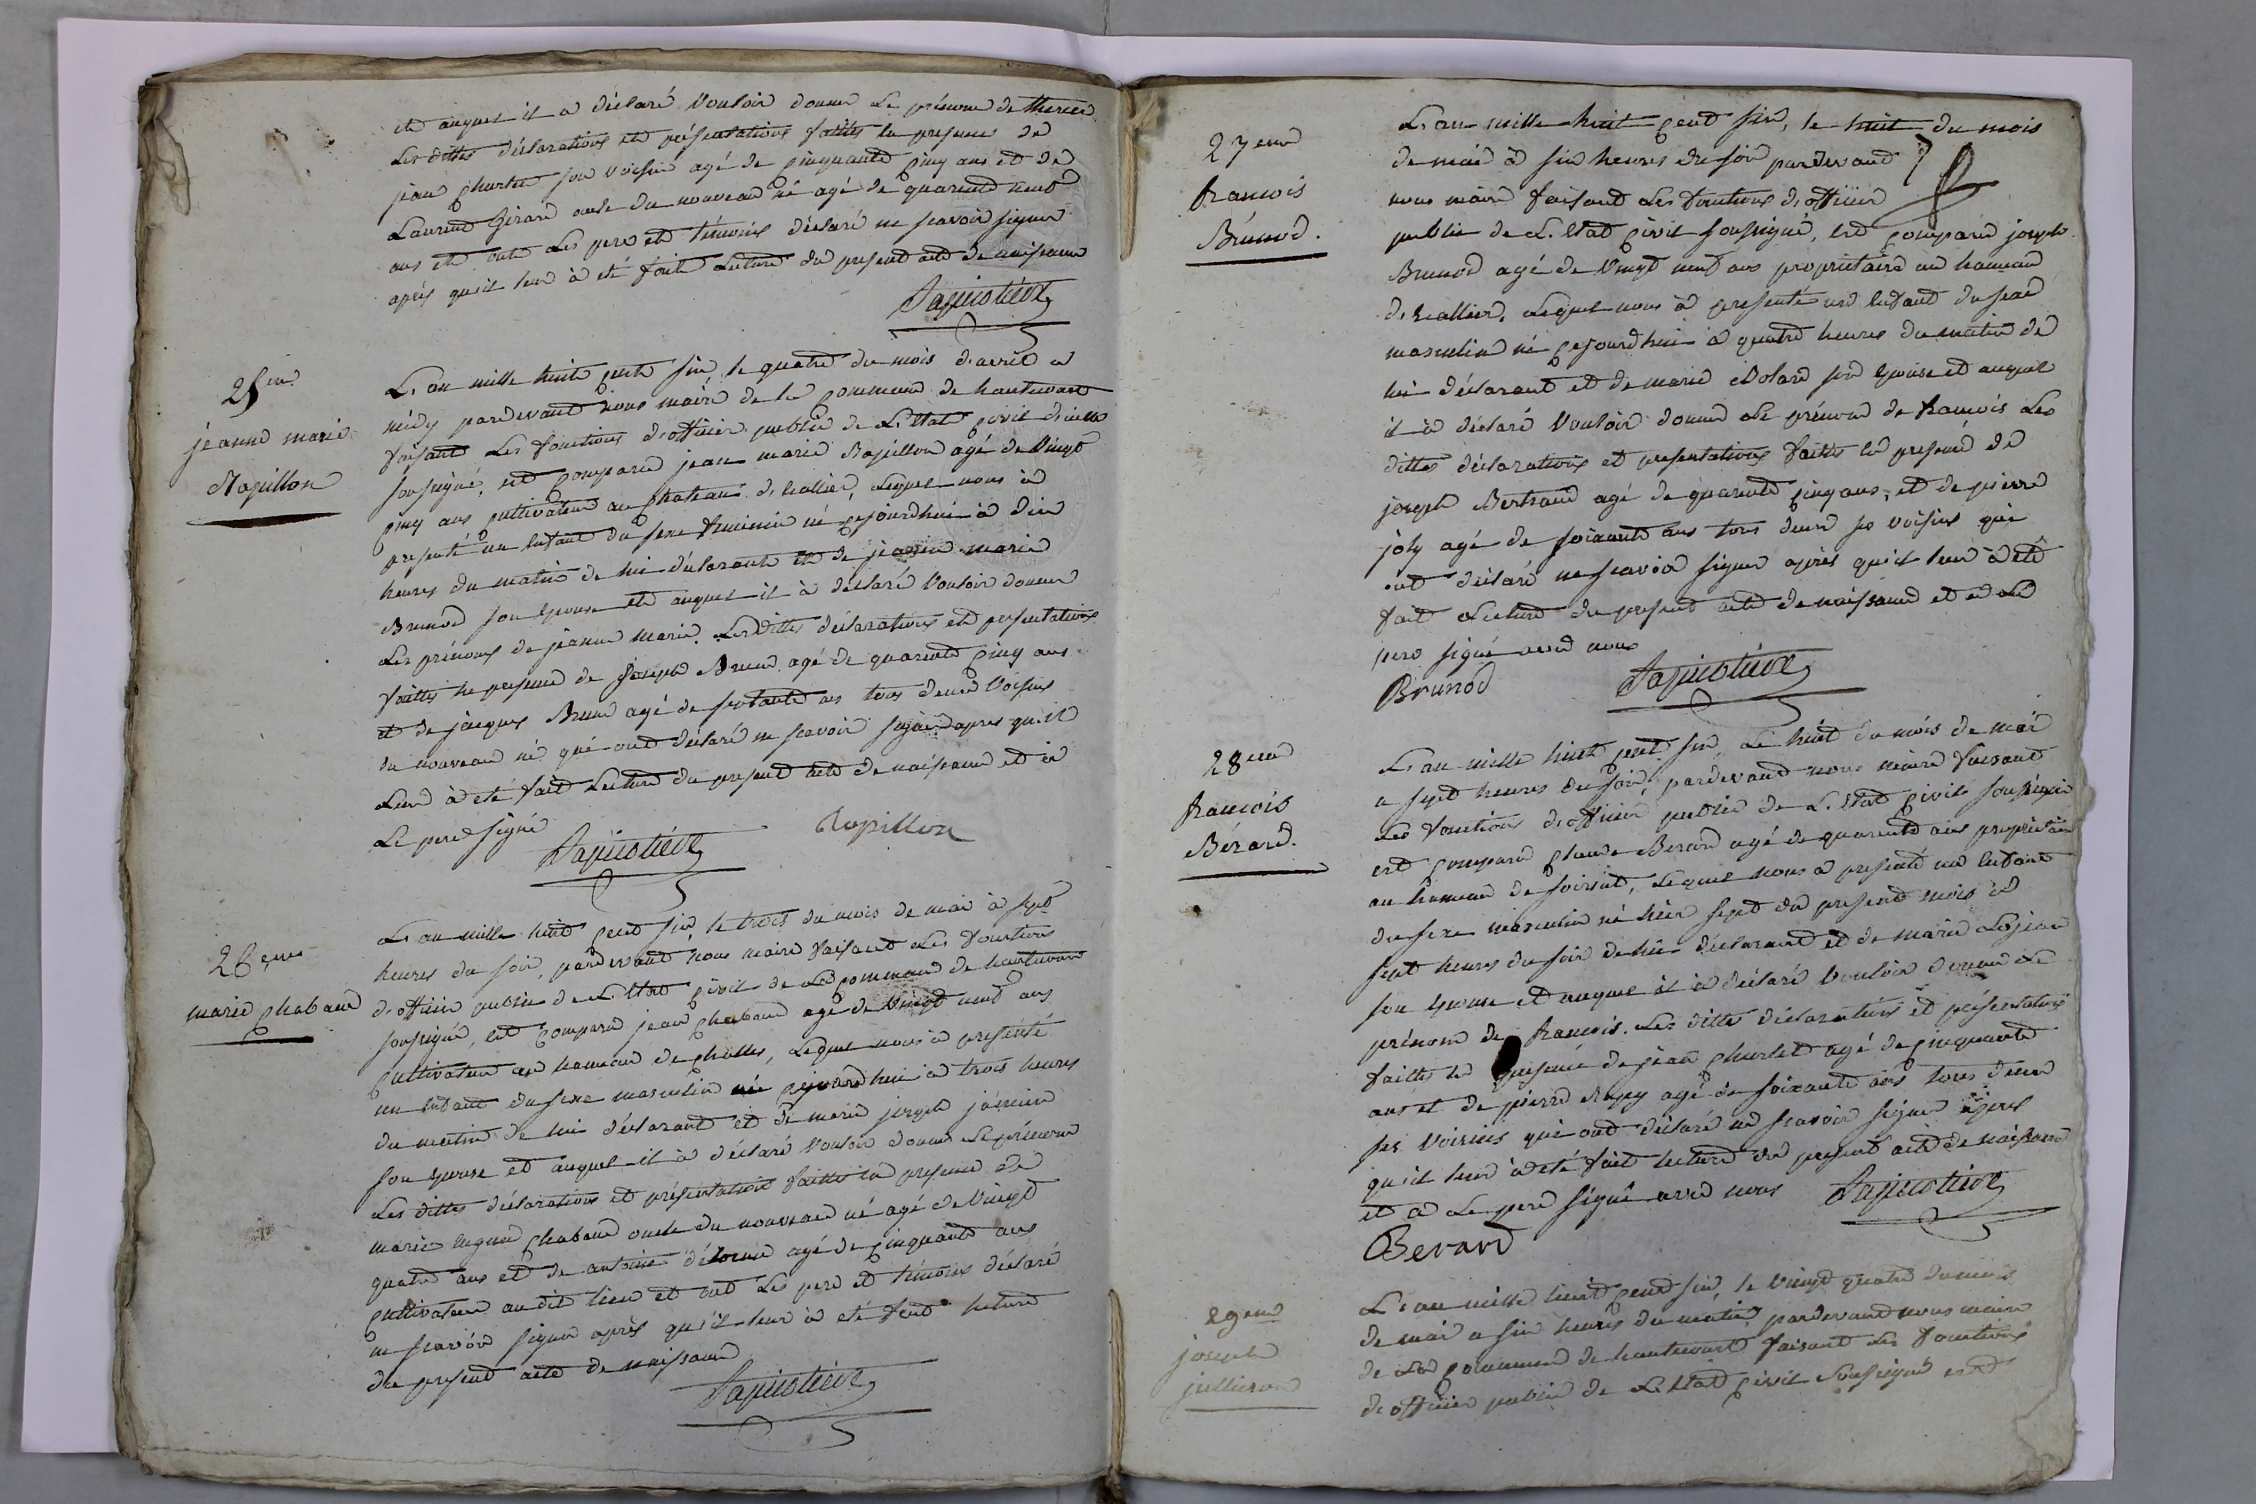 et auquel il a déclaré vouloir donner le prénom de therese
Les dittes déclarations et présentations faittes en presence de
jean Charles son voisin agé de cinquante cinq ans et de
Laurend Girard oncle du nouveau né agé de quarente neuf
ans et ont Les pere et témoins déclaré ne scavoir signer
après qu'il leur à eté fait Lecture du present acte de naissance
25eme
jeanne marie
Rapillon
L'an mille huit cent six le quatre du mois d'avril a
midy pardevant nous maire de la commune de hautecourt
faisant Les fonctions d'officier public de L'Etat civil d'icelle
soussigné, est comparu jean marie Rapillon agé de vingt
cinq ans cultivateur au chateau, Lequel nous à
presenté un enfant du sexe feminin né cejourdhui à dix
heures du matin de lui déclarant et de marie
Brunod son epouse et auquel il à déclaré vouloir donner
Les prénoms de jeanne marie. Les dittes déclarations et presentations
faittes en presence de joseph Brun agé de quarente cinq ans
et de jacques Brun agé de septante ans tous deux voisins
du nouveau né qui ont déclaré ne scavoir signer apres qu'il
Leur à eté fait Lecture du present acte de naissance et à
Le pere signé
Rapillon
26eme
marie chabaud
L'an mille huit cent six le trois du mois de mai à sept
heures du soir, pardevant nous maire faisant Les fonctions
d'officier public de L'Etat civil de La commune de hautecourt
soussigné, est comparu jean chabaud agé de vingt neuf ans
cultivateur au hameau de, Lequel nous à presenté
un enfant du sexe masculin né cejourdhui à trois heures
du matin de lui déclarant et de marie joseph
son epouse et auquel il à déclaré vouloir donner Le prénom
Les dittes déclarations et présentations faittes en presence de
marie chabaud oncle du nouveau né agé de vingt
quatre ans et de antoine agé de cinquante ans
cultivateur audit lieu et ont Les pere et témoins déclaré
ne scavoir signer après qu'il leur à eté fait lecture
du present acte de naissance
27eme
francois
Brunod.
L'an mille huit cent six, le huit du mois
de mai à six heures du soir pardevant
nous maire faisant Les fonctions d'officier
public de L'Etat civil soussigné, est comparu joseph
Brunod agé de vingt neuf ans propriétaire au hameau
Lequel nous à presenté un enfant du sexe
masculin né cejourdhui à quatre heures du matin de
lui déclarant et de marie son epouse et auquel
il à déclaré vouloir donner Le prénom de francois Les
dittes déclarations et presentations faittes en presence de
joseph Bertrand agé de quarente cinq ans, et de pierre
joly agé de soixante ans tous deux ses voisins qui
ont déclaré ne scavoir signer après qu'il leur à eté
fait Lecture du present acte de naissance et a Le
pere signé avec nous
Brunod
28eme
francois
Bérard.
L'an mille huit cent six, Le huit du mois de mai
a sept heures du soir, pardevant nous maire faisant
Les fonctions d'officier public de L'Etat civil soussigné
est comparu claude Berard agé de quarente ans propriétaire
au hameau de, Lequel nous a presenté un enfant
du sexe masculin né hier sept du present mois à
sept heures du soir de lui déclarant et de marie
son epouse et auquel il à déclaré vouloir donner Le
prénom de francois. Les dittes déclarations et présentations
faittes en presence de jean agé de cinquante
ans et de pierre agé de soixante ans tous deux
ses voisins qui ont déclaré ne scavoir signer apres
qu'il leur à eté fait lecture du present acte de naissance
et a Le pere signé avec nous
Berard
29eme
joseph
L'an mille huit cent six, le vingt quatre du mois
de mai a six heures du matin pardevant nous maire
de La commune de hautecourt faisant Les fonctions
d'officier public de L'Etat civil soussigné est